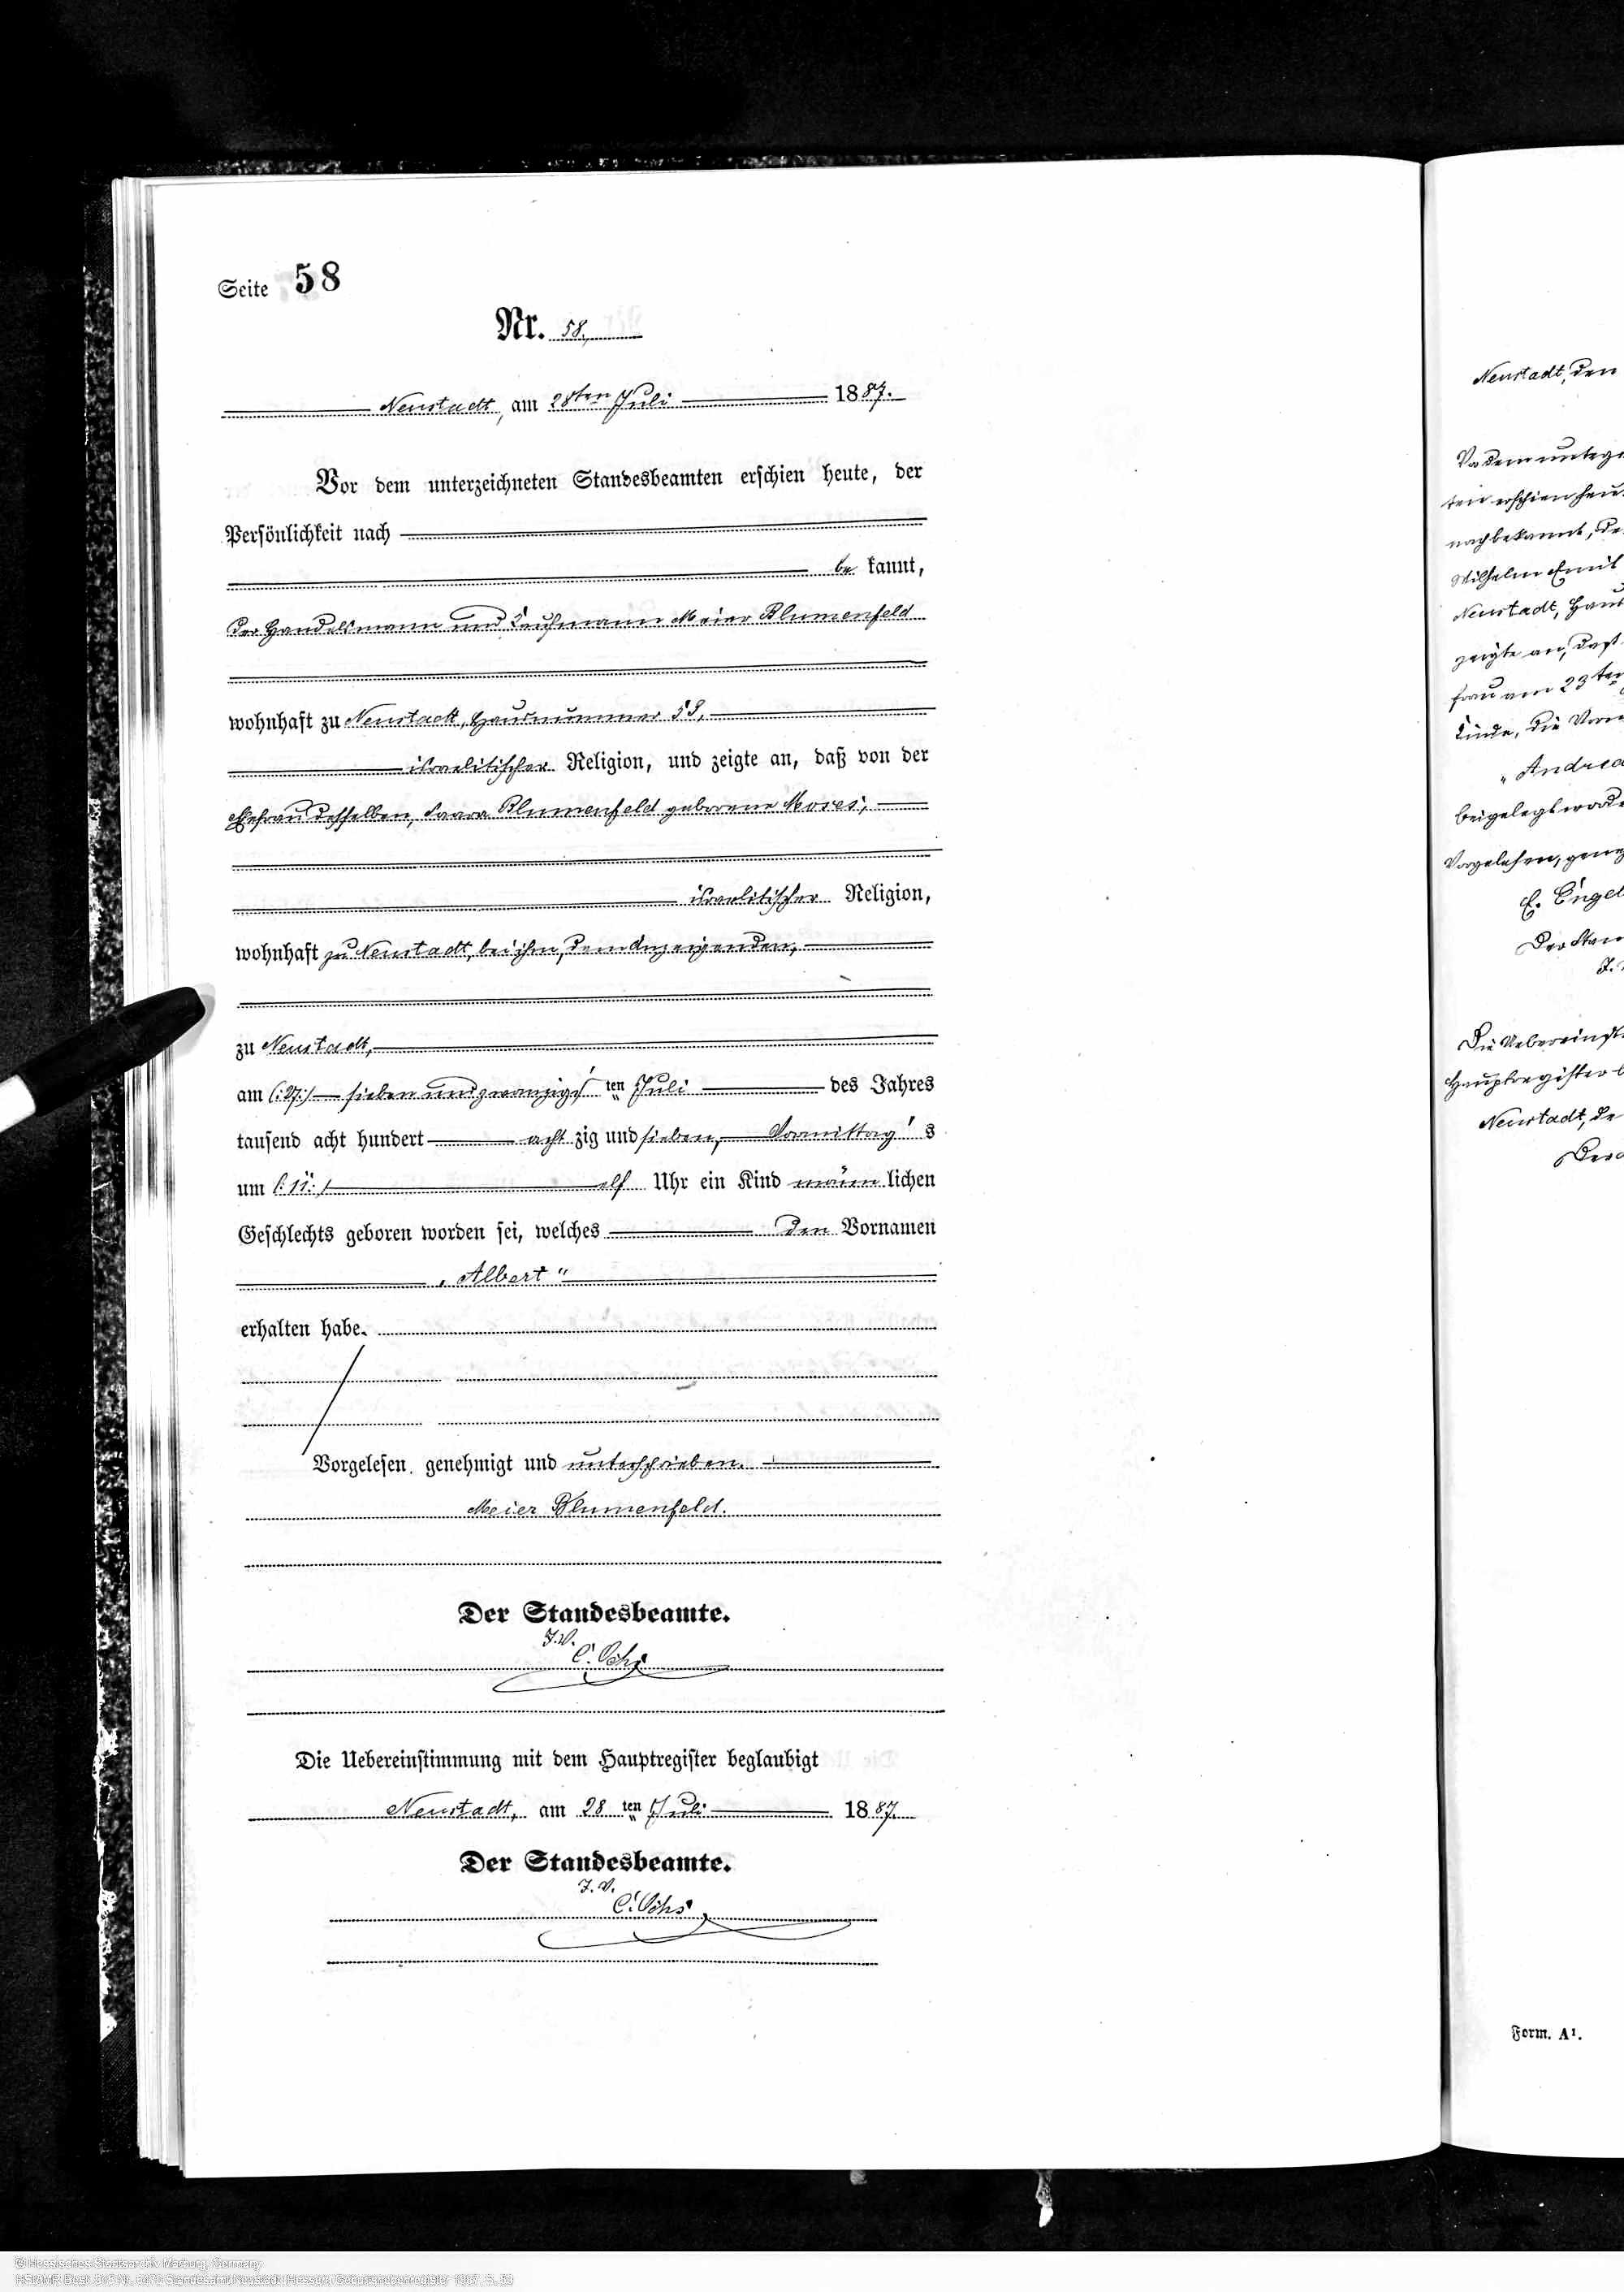 Seite 58
Nr. 58.
Neustadt, am 28ten Juli 1887.
Vor dem unterzeichneten Standesbeamten erschien heute, der
Persönlichkeit nach
be kannt,
der Handelsmann und Kaufmann Meier Blumenfeld
wohnhaft zu Neustadt, Hausnummer 58,
israelitischer Religion, und zeigte an, daß von der
Ehefrau desselben, Saara Blumenfeld geborene Moses,
israelitischer Religion,
wohnhaft zu Neustadt, bei ihm, dem Anzeigenden,
zu Neustadt,
am (:27:) sieben und zwanzigs ten Juli des Jahres
tausend acht hundert acht zig und sieben, Vormittag s
um (:11:) elf Uhr ein Kind männ lichen
Geschlechts geboren worden sei, welches den Vornamen
„Albert“
erhalten habe.
Vorgelesen, genehmigt und unterschrieben.
Meier Blumenfeld.
Der Standesbeamte.
J.V.
C. Ochs
Die Uebereinstimmung mit dem Hauptregister beglaubigt
Neustadt, am 28 ten Juli 1887.
Der Standesbeamte.
J.V.
C. Ochs
Neustadt, den
Vor dem unterge
ten erschien heu
nach bekannt, de
Wilhelm Emil
Neustadt, Hau
zeigte an, daß
frau am 23ten
Kinde, die Vorn
„Andrea
beigelegt worde
Vorgelesen, gene
E. Engel
Der Stan
J.
Die Uebereinst
Hauptregister b
Neustadt, de
Der
Form. A¹.
© Hessisches Staatsarchiv Marburg, Germany